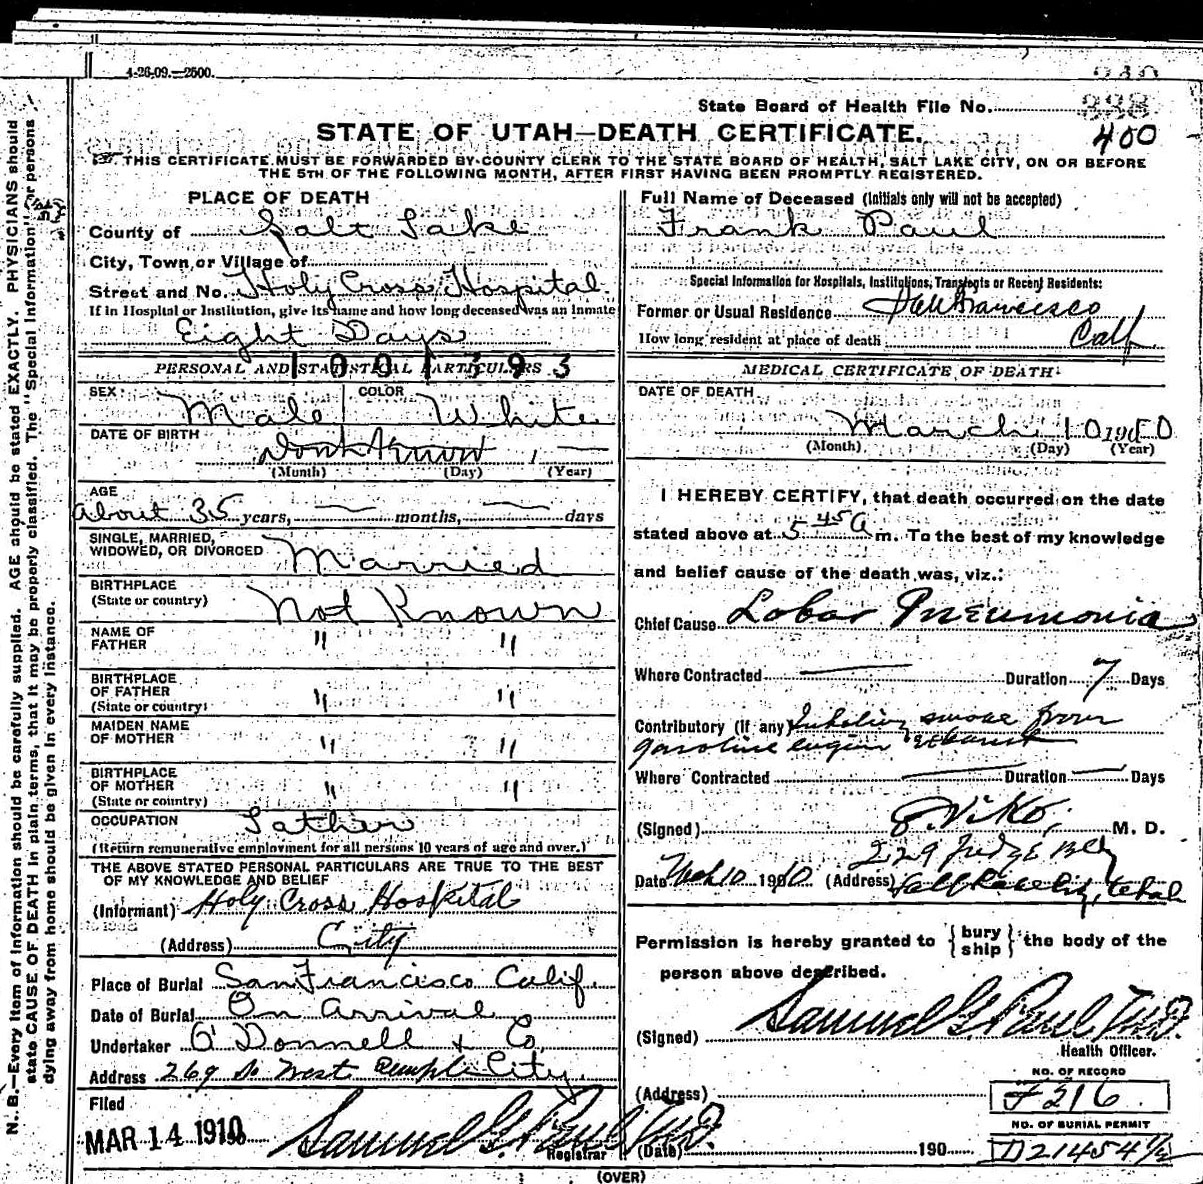 4-26-09.—2500.
State Board of Health File No.
400
STATE OF UTAH—DEATH CERTIFICATE.
THIS CERTIFICATE MUST BE FORWARDED BY COUNTY CLERK TO THE STATE BOARD OF HEALTH, SALT LAKE CITY, ON OR BEFORE
THE 5TH OF THE FOLLOWING MONTH, AFTER FIRST HAVING BEEN PROMPTLY REGISTERED.
N. B.—Every item of information should be carefully supplied. AGE should be stated EXACTLY. PHYSICIANS should
state CAUSE OF DEATH in plain terms, that it may be properly classified. The "Special Information" for persons
dying away from home should be given in every instance.
PLACE OF DEATH
County of Salt Lake
City, Town or Village of
Street and No. Holy Cross Hospital
If in Hospital or Institution, give its name and how long deceased was an Inmate
Eight Days
1001393
PERSONAL AND STATISTICAL PARTICULARS
SEX Male COLOR White
DATE OF BIRTH Dont Know
(Month) (Day) (Year)
AGE
about 35 years, — months, — days
SINGLE, MARRIED,
WIDOWED, OR DIVORCED Married
BIRTHPLACE
(State or country) Not Known
NAME OF
FATHER " "
BIRTHPLACE
OF FATHER
(State or country) " "
MAIDEN NAME
OF MOTHER " "
BIRTHPLACE
OF MOTHER
(State or country) " "
OCCUPATION Lather
(Return remunerative employment for all persons 10 years of age and over.)
THE ABOVE STATED PERSONAL PARTICULARS ARE TRUE TO THE BEST
OF MY KNOWLEDGE AND BELIEF
(Informant) Holy Cross Hospital
(Address) City
Place of Burial San Francisco Calif.
Date of Burial On Arrival
Undertaker O'Donnell & Co.
Address 269 So West Temple City
Filed
MAR 14 1910 Samuel G. Paul M.D.
Registrar
Full Name of Deceased (Initials only will not be accepted)
Frank Paul
Special Information for Hospitals, Institutions, Transients or Recent Residents:
Former or Usual Residence San Francisco
How long resident at place of death Calf
MEDICAL CERTIFICATE OF DEATH
DATE OF DEATH
March 10 1910
(Month) (Day) (Year)
I HEREBY CERTIFY, that death occurred on the date
stated above at 5 45 A m. To the best of my knowledge
and belief cause of the death was, viz.:
Chief Cause Lobar Pneumonia
Where Contracted — Duration 7 Days
Contributory (if any) Inhaling smoke from
gasoline engin exhaust
Where Contracted — Duration — Days
(Signed) M. D.
229 Judge Bldg
Date Mch 10 1910 (Address) Salt Lake City, Utah
Permission is hereby granted to {bury ship} the body of the
person above described.
(Signed) Samuel G. Paul M.D.
Health Officer.
NO. OF RECORD
(Address) F 216
NO. OF BURIAL PERMIT
(Date) 190 D21454 1/2
(OVER)